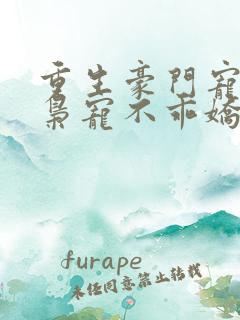 重生豪門寵
梟寵不乖嬌
furape
未经同意禁止转载